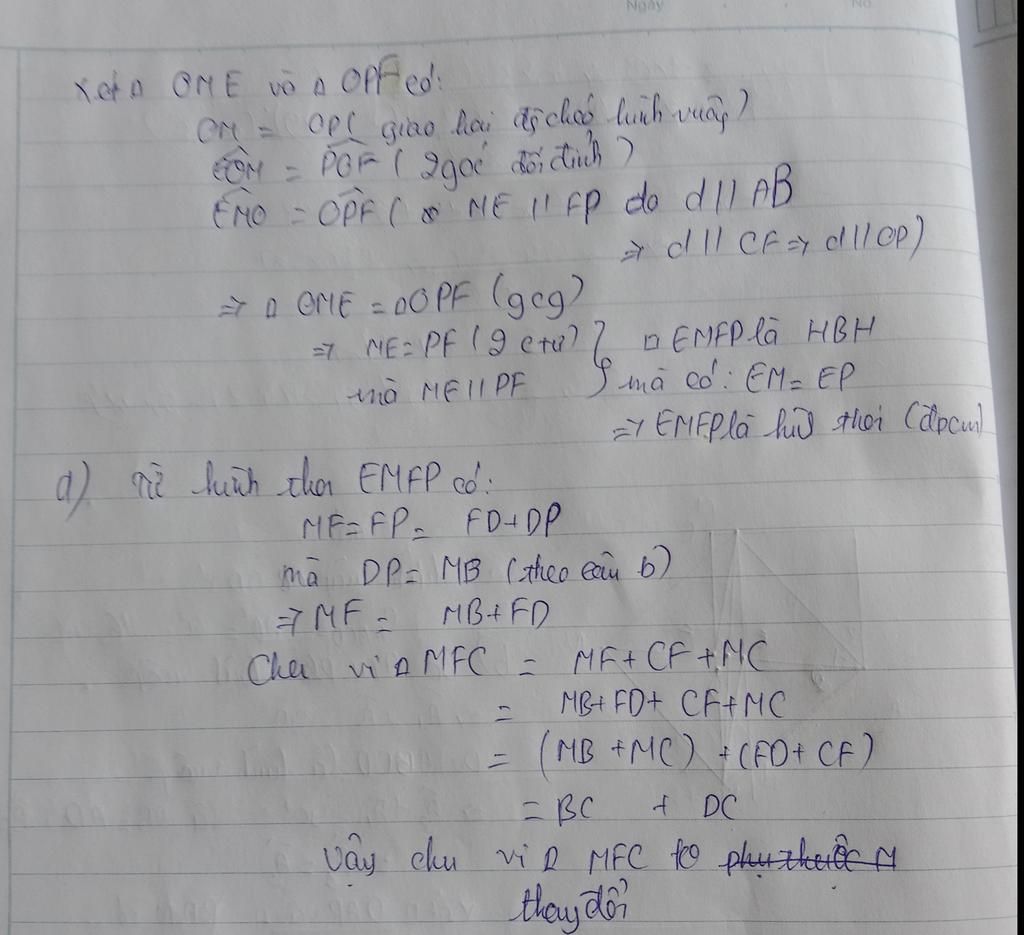 Ngày No
Xét Δ OME và Δ OPF có:
OM = OP( giao hai đg chéo hình vuông)
EOM = POF ( 2 góc đối đỉnh )
EMO = OPF ( ME // FP do d // AB
=> d // CF => d // OP)
=> Δ OME = Δ OPF (gcg)
=> ME = PF (2 c tư) } □ EMFP là HBH
mà ME // PF } mà có: EM = EP
=> EMFP là hình thoi (đpcm)
d) Từ hình thoi EMFP có:
MF = FP = FD + DP
mà DP = MB (theo câu b)
=> MF = MB + FD
Chu vi Δ MFC = MF + CF + MC
= MB + FD + CF + MC
= (MB + MC) + (FD + CF)
= BC + DC
Vậy chu vi Δ MFC ko phụ thuộc M
thay đổi